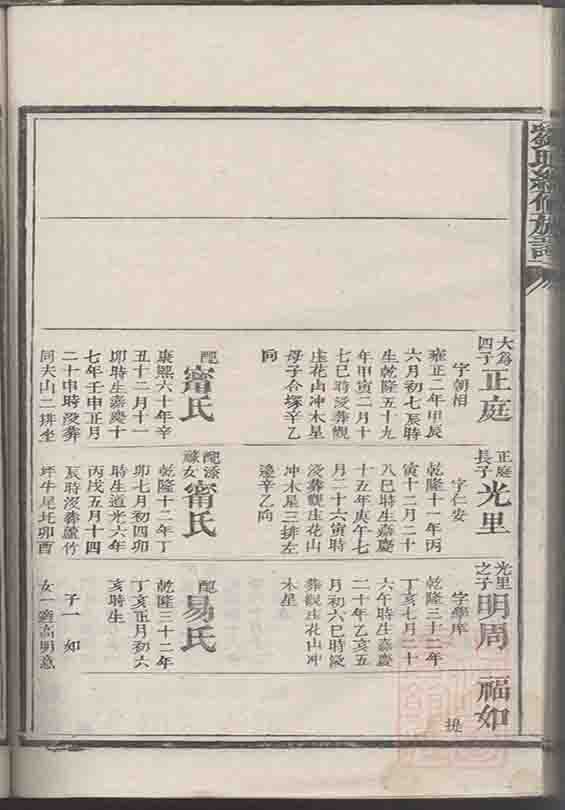 劉氏續修族譜
大為四子
正庭
字朝相
雍正二年甲辰
六月初七辰時
生乾隆五十九
年甲寅二月十
七巳時沒葬觀
庄花山冲木星
母子合塚辛乙
向
配
甯氏
康熙六十年辛
丑十二月十一
卯時生嘉慶十
七年壬申正月
二十申時沒葬
同夫山二排坐
正庭長子
光里
字仁安
乾隆十一年丙
寅十二月二十
八巳時生嘉慶
十五年庚午七
月二十六寅時
沒葬觀庄花山
冲木星三排左
邊辛乙向
配
女
甯氏
乾隆十二年丁
卯七月初四卯
時生道光六年
丙戌五月十四
辰時沒葬蘆竹
坪牛尾圫卯酉
光里之子
明周
字學庠
乾隆三十二年
丁亥七月二十
六午時生嘉慶
二十年乙亥五
月初六巳時沒
葬觀庄花山冲
木星
配
易氏
乾隆三十二年
丁亥正月初六
亥時生
子一 如
女一適高明意
福如
提